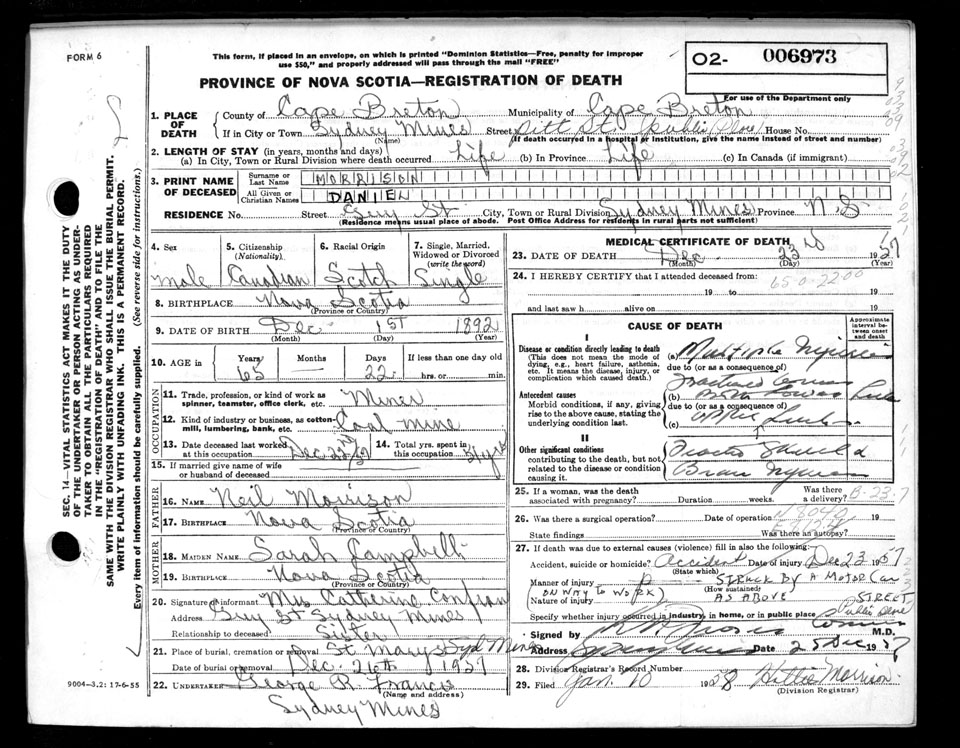 FORM 6
This form, if placed in an envelope, on which is printed "Dominion Statistics—Free, penalty for improper
use $50," and properly addressed will pass through the mail "FREE"
02- 006973
For use of the Department only
PROVINCE OF NOVA SCOTIA—REGISTRATION OF DEATH
1. PLACE OF DEATH
County of Cape Breton Municipality of Cape Breton
If in City or Town Sydney Mines Street Pitt St. public place House No.
(Name) (If death occurred in a hospital or institution, give the name instead of street and number)
2. LENGTH OF STAY (in years, months and days)
(a) In City, Town or Rural Division where death occurred Life (b) In Province Life (c) In Canada (if immigrant)
3. PRINT NAME OF DECEASED
Surname or Last Name MORRISON
All Given or Christian Names DANIEL
RESIDENCE No. Street Guy St City, Town or Rural Division Sydney Mines Province N.S
(Residence means usual place of abode. Post Office Address for residents in rural parts not sufficient)
4. Sex 5. Citizenship (Nationality) 6. Racial Origin 7. Single, Married, Widowed or Divorced (write the word)
male Canadian Scotch Single
8. BIRTHPLACE Nova Scotia
(Province or Country)
9. DATE OF BIRTH Dec 1st 1892
(Month) (Day) (Year)
10. AGE in Years Months Days If less than one day old
65 — 22 hrs. or min.
OCCUPATION
11. Trade, profession, or kind of work as spinner, teamster, office clerk, etc. Miner
12. Kind of industry or business, as cotton-mill, lumbering, bank, etc. Coal mine
13. Date deceased last worked at this occupation Dec 22nd/57 14. Total yrs. spent in this occupation
15. If married give name of wife or husband of deceased
FATHER
16. NAME Neil Morrison
17. BIRTHPLACE Nova Scotia
(Province or Country)
MOTHER
18. MAIDEN NAME Sarah Campbell
19. BIRTHPLACE Nova Scotia
(Province or Country)
20. Signature of informant Mrs Catherine
Address Guy St Sydney Mines
Relationship to deceased Sister
21. Place of burial, cremation or removal St Marys Syd Mines
Date of burial or removal Dec. 26th 1957
22. UNDERTAKER George R. Francis
(Name and address)
Sydney Mines
MEDICAL CERTIFICATE OF DEATH
23. DATE OF DEATH Dec 23rd 1957
(Month) (Day) (Year)
24. I HEREBY CERTIFY that I attended deceased from:
650-2200
19 to 19
and last saw h alive on 19
CAUSE OF DEATH
Approximate interval between onset and death
I
Disease or condition directly leading to death
(This does not mean the mode of dying, e.g., heart failure, asthenia, etc. It means the disease, injury, or complication which caused death.)
(a) Multiple Injuries
due to (or as a consequence of)
Antecedent causes
Morbid conditions, if any, giving rise to the above cause, stating the underlying condition last.
Fractured
(b) Both lower
due to (or as a consequence of)
(c) upper
II
Other significant conditions
contributing to the death, but not related to the disease or condition causing it.
Skull
Brain Injuries
25. If a woman, was the death associated with pregnancy? Duration weeks. Was there a delivery?
26. Was there a surgical operation? Date of operation 19
State findings Was there an autopsy?
27. If death was due to external causes (violence) fill in also the following:
Accident, suicide or homicide? Accident Date of injury Dec 23 1957
(State which)
Manner of injury STRUCK BY A MOTOR CAR
(How sustained)
ON WAY TO WORK)
Nature of injury AS ABOVE STREET
Specify whether injury occurred in industry, in home, or in public place Public place
Signed by Coroner M.D.
Address Date 25 Dec 1957
28. Division Registrar's Record Number
29. Filed Jan. 10 1958 Hattie Morrison
(Division Registrar)
SEC. 14—VITAL STATISTICS ACT MAKES IT THE DUTY
OF THE UNDERTAKER OR PERSON ACTING AS UNDER-
TAKER TO OBTAIN ALL THE PARTICULARS REQUIRED
IN THE "REGISTRATION OF DEATH" AND TO FILE THE
SAME WITH THE DIVISION REGISTRAR WHO SHALL ISSUE THE BURIAL PERMIT.
WRITE PLAINLY WITH UNFADING INK. THIS IS A PERMANENT RECORD.
Every item of information should be carefully supplied. (See reverse side for instructions.)
9004-3.2: 17-6-55